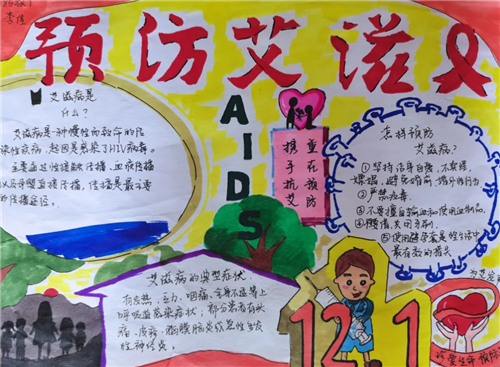 李佳
预防艾滋
AIDS
艾滋病是
什么?
艾滋病是一种慢性而致命的传
染性疾病,起因是感染了HIV病毒。
主要通过性接触传播、血液传播
以及母婴直接传播,传播是最主要
的传播途径。
重在预防
携手抗艾
怎样预防
艾滋病?
①坚持洁身自爱,不卖淫、
嫖娼,避免婚前、婚外性行为
②严禁吸毒。
③不要擅自输血和使用血制品。
④
⑤使用避孕套是性生活中
最有效的措施
艾滋病的典型症状
有发热,乏力,咽痛,全身不适等上
呼吸道感染症状,部分患者有头
痛、皮疹、脑膜脑炎或急性多发
性神经炎。
12 1
珍爱生命 预防